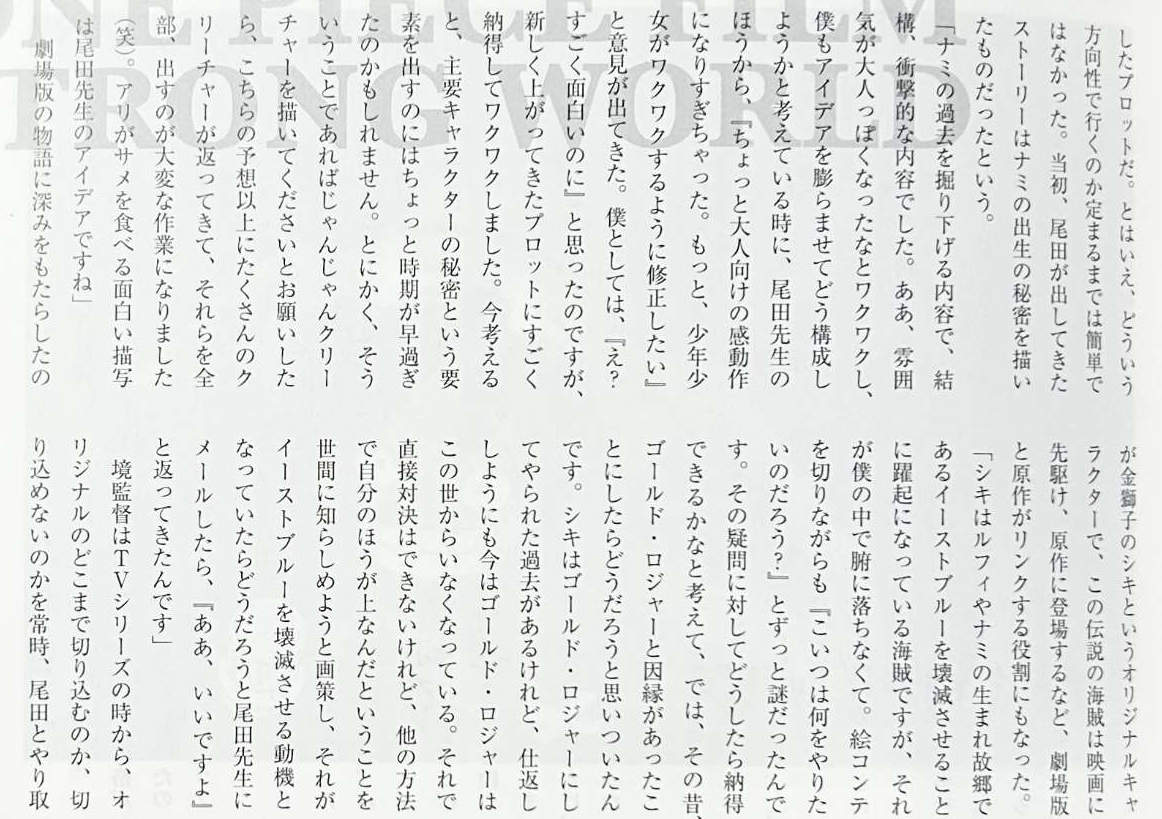 ONE PIECE FILM
STRONG WORLD
したプロットだ。とはいえ、どういう
方向性で行くのか定まるまでは簡単で
はなかった。当初、尾田が出してきた
ストーリーはナミの出生の秘密を描い
たものだったという。
「ナミの過去を掘り下げる内容で、結
構、衝撃的な内容でした。ああ、雰囲
気が大人っぽくなったなとワクワクし、
僕もアイデアを膨らませてどう構成し
ようかと考えている時に、尾田先生の
ほうから、『ちょっと大人向けの感動作
になりすぎちゃった。もっと、少年少
女がワクワクするように修正したい』
と意見が出てきた。僕としては、『え？
すごく面白いのに』と思ったのですが、
新しく上がってきたプロットにすごく
納得してワクワクしました。今考える
と、主要キャラクターの秘密という要
素を出すのにはちょっと時期が早過ぎ
たのかもしれません。とにかく、そう
いうことであればじゃんじゃんクリー
チャーを描いてくださいとお願いした
ら、こちらの予想以上にたくさんのク
リーチャーが返ってきて、それらを全
部、出すのが大変な作業になりました
（笑）。アリがサメを食べる面白い描写
は尾田先生のアイデアですね」
劇場版の物語に深みをもたらしたの
が金獅子のシキというオリジナルキャ
ラクターで、この伝説の海賊は映画に
先駆け、原作に登場するなど、劇場版
と原作がリンクする役割にもなった。
「シキはルフィやナミの生まれ故郷で
あるイーストブルーを壊滅させること
に躍起になっている海賊ですが、それ
が僕の中で腑に落ちなくて。絵コンテ
を切りながらも『こいつは何をやりた
いのだろう？』とずっと謎だったんで
す。その疑問に対してどうしたら納得
できるかなと考えて、では、その昔、
ゴールド・ロジャーと因縁があったこ
とにしたらどうだろうと思いついたん
です。シキはゴールド・ロジャーにし
てやられた過去があるけれど、仕返し
しようにも今はゴールド・ロジャーは
この世からいなくなっている。それで
直接対決はできないけれど、他の方法
で自分のほうが上なんだということを
世間に知らしめようと画策し、それが
イーストブルーを壊滅させる動機と
なっていたらどうだろうと尾田先生に
メールしたら、『ああ、いいですよ』
と返ってきたんです」
境監督はTVシリーズの時から、オ
リジナルのどこまで切り込むのか、切
り込めないのかを常時、尾田とやり取